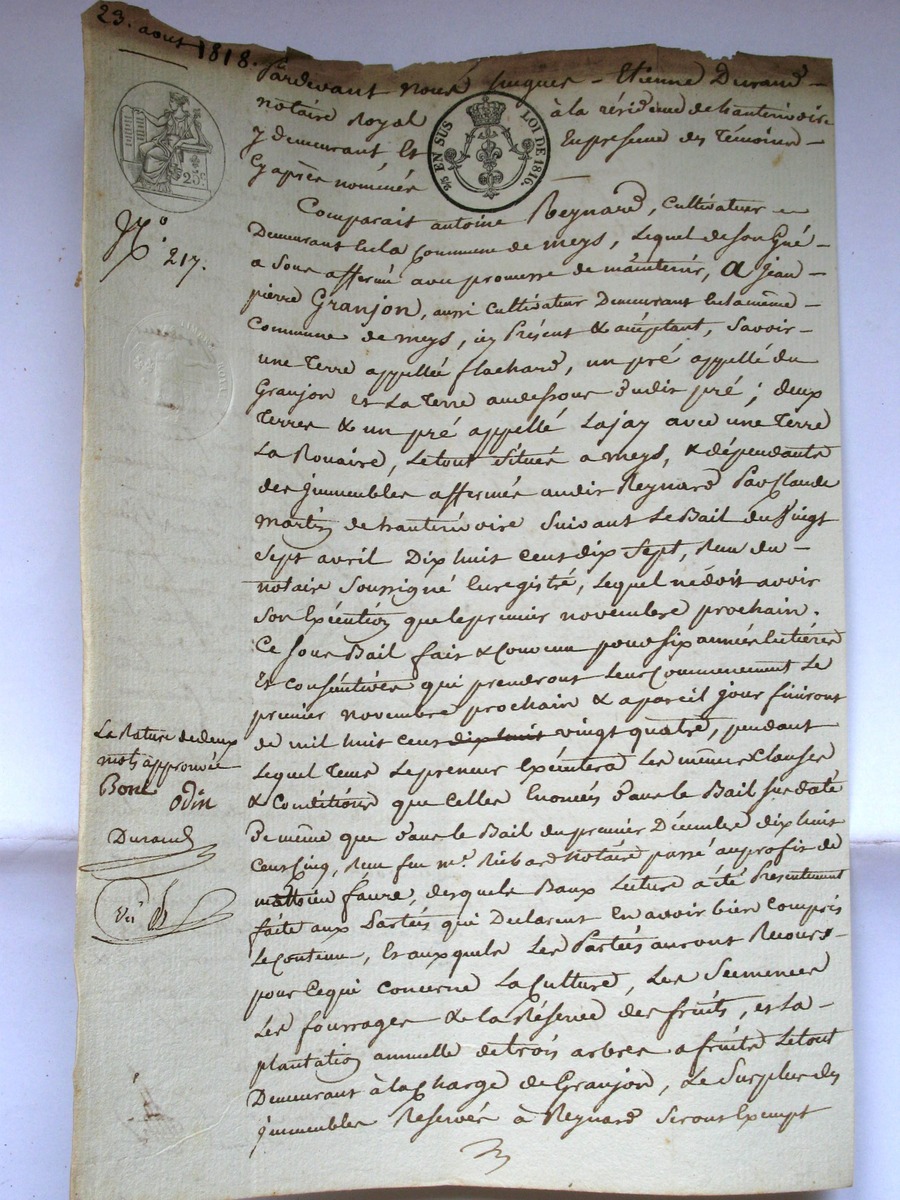 23. aout 1818.
Pardevant nous hugues - Etienne Durand -
notaire Royal à la résidence de hauterivoire
y demeurant Et En presence des Témoins -
Cy après nommés
25c
EN SUS LOI DE 1816.
No. 217.
Comparait antoine Reynard, Cultivateur
Demeurant En la Commune de meys, Lequel de son Gré -
a Sous affermé avec promesse de maintenir, a Jean -
pierre Granjon, aussi Cultivateur Demeurant En la même -
Commune de meys, icy Présent & acceptant, Savoir -
une Terre appellée flachard, un pré appellé du
Granjon Et La Terre au dessous dudit pré ; deux
Terres & un pré appellé Lajay avec une Terre
La Rouaire, Le tout Situés a meys, & dépendants
des immeubles affermés audit Reynard Par Claude
martin de hauterivoire Suivant Le Bail du Vingt
Sept avril Dix huit cent dix Sept, Reçu du -
notaire Soussigné Enregistré, Lequel ne doit avoir
Son Exécution que le premier novembre prochain.
Ce sous Bail fait & Convenu pour six années Entières
Et Consécutives qui prendront Leur Commencement Le
premier novembre prochain & a pareil jour finiront
de mil huit cent dix huit vingt quatre, pendant
Lequel Tems Le preneur Exécutera Les mêmes Clauses
& Conditions que Celles Enoncées dans le Bail sus daté
de même que dans le Bail du premier Décembre dix huit
Cent Cinq, Reçu feu me. Richard Notaire passé au profit de
mathieu faure, desquels Baux Lecture a été Présentement
faite aux Parties qui Declarent En avoir bien Compris
Le Contenu, Et auxquels Les Parties auront Recours -
pour Ce qui Concerne La Culture, Les Semences
Les fourrages & la Réserve des fruits, et La -
plantation annuelle de trois arbres a fruits Le tout
Demeurant à la Charge de Granjon, Le Surplus des
immeubles Reservés à Reynard Seront Exempt
La Rature de deux
mots approuvée
Bone Odin
Durand